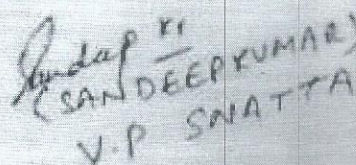 Sandeep Kr
(SANDEEPKUMAR)
V.P SNATTA